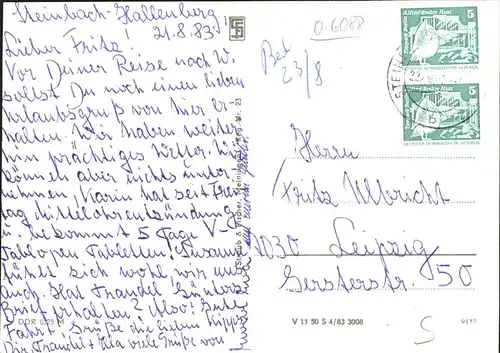 Steinbach-Hallenberg,
21.8.83
Lieber Fritz!
Vor Deiner Reise nach W.
sollst Du noch einen lieben
Urlaubsgruß von hier er-
halten. Wir haben weiter-
hin prächtiges Wetter. Wir
können aber nichts unter-
nehmen, Karin hat seit Frei-
tag Mittelohrentzündung
u. bekommt 5 Tage V-
Tablopen Tabletten. Susanne
fühlt sich wohl, wir uns
auch. Hat Traudel Günters
Brief erhalten? Also: Gute
Fahrt, Grüße die lieben
Dir, Traudel + Ulla viele Grüße von
DDR 0,25 M
Straub & Fischer, Meiningen
Reg.-Nr. 23
V 11 50 S 4/83 3008
0.6088
Bed
23/8
Alfred-Brehm-Haus
5
DEUTSCHE DEMOKRATISCHE REPUBLIK
Alfred-Brehm-Haus
5
DEUTSCHE DEMOKRATISCHE REPUBLIK
b
Herrn
Fritz Ulbricht
7030 Leipzig
Gersterstr. 50
S